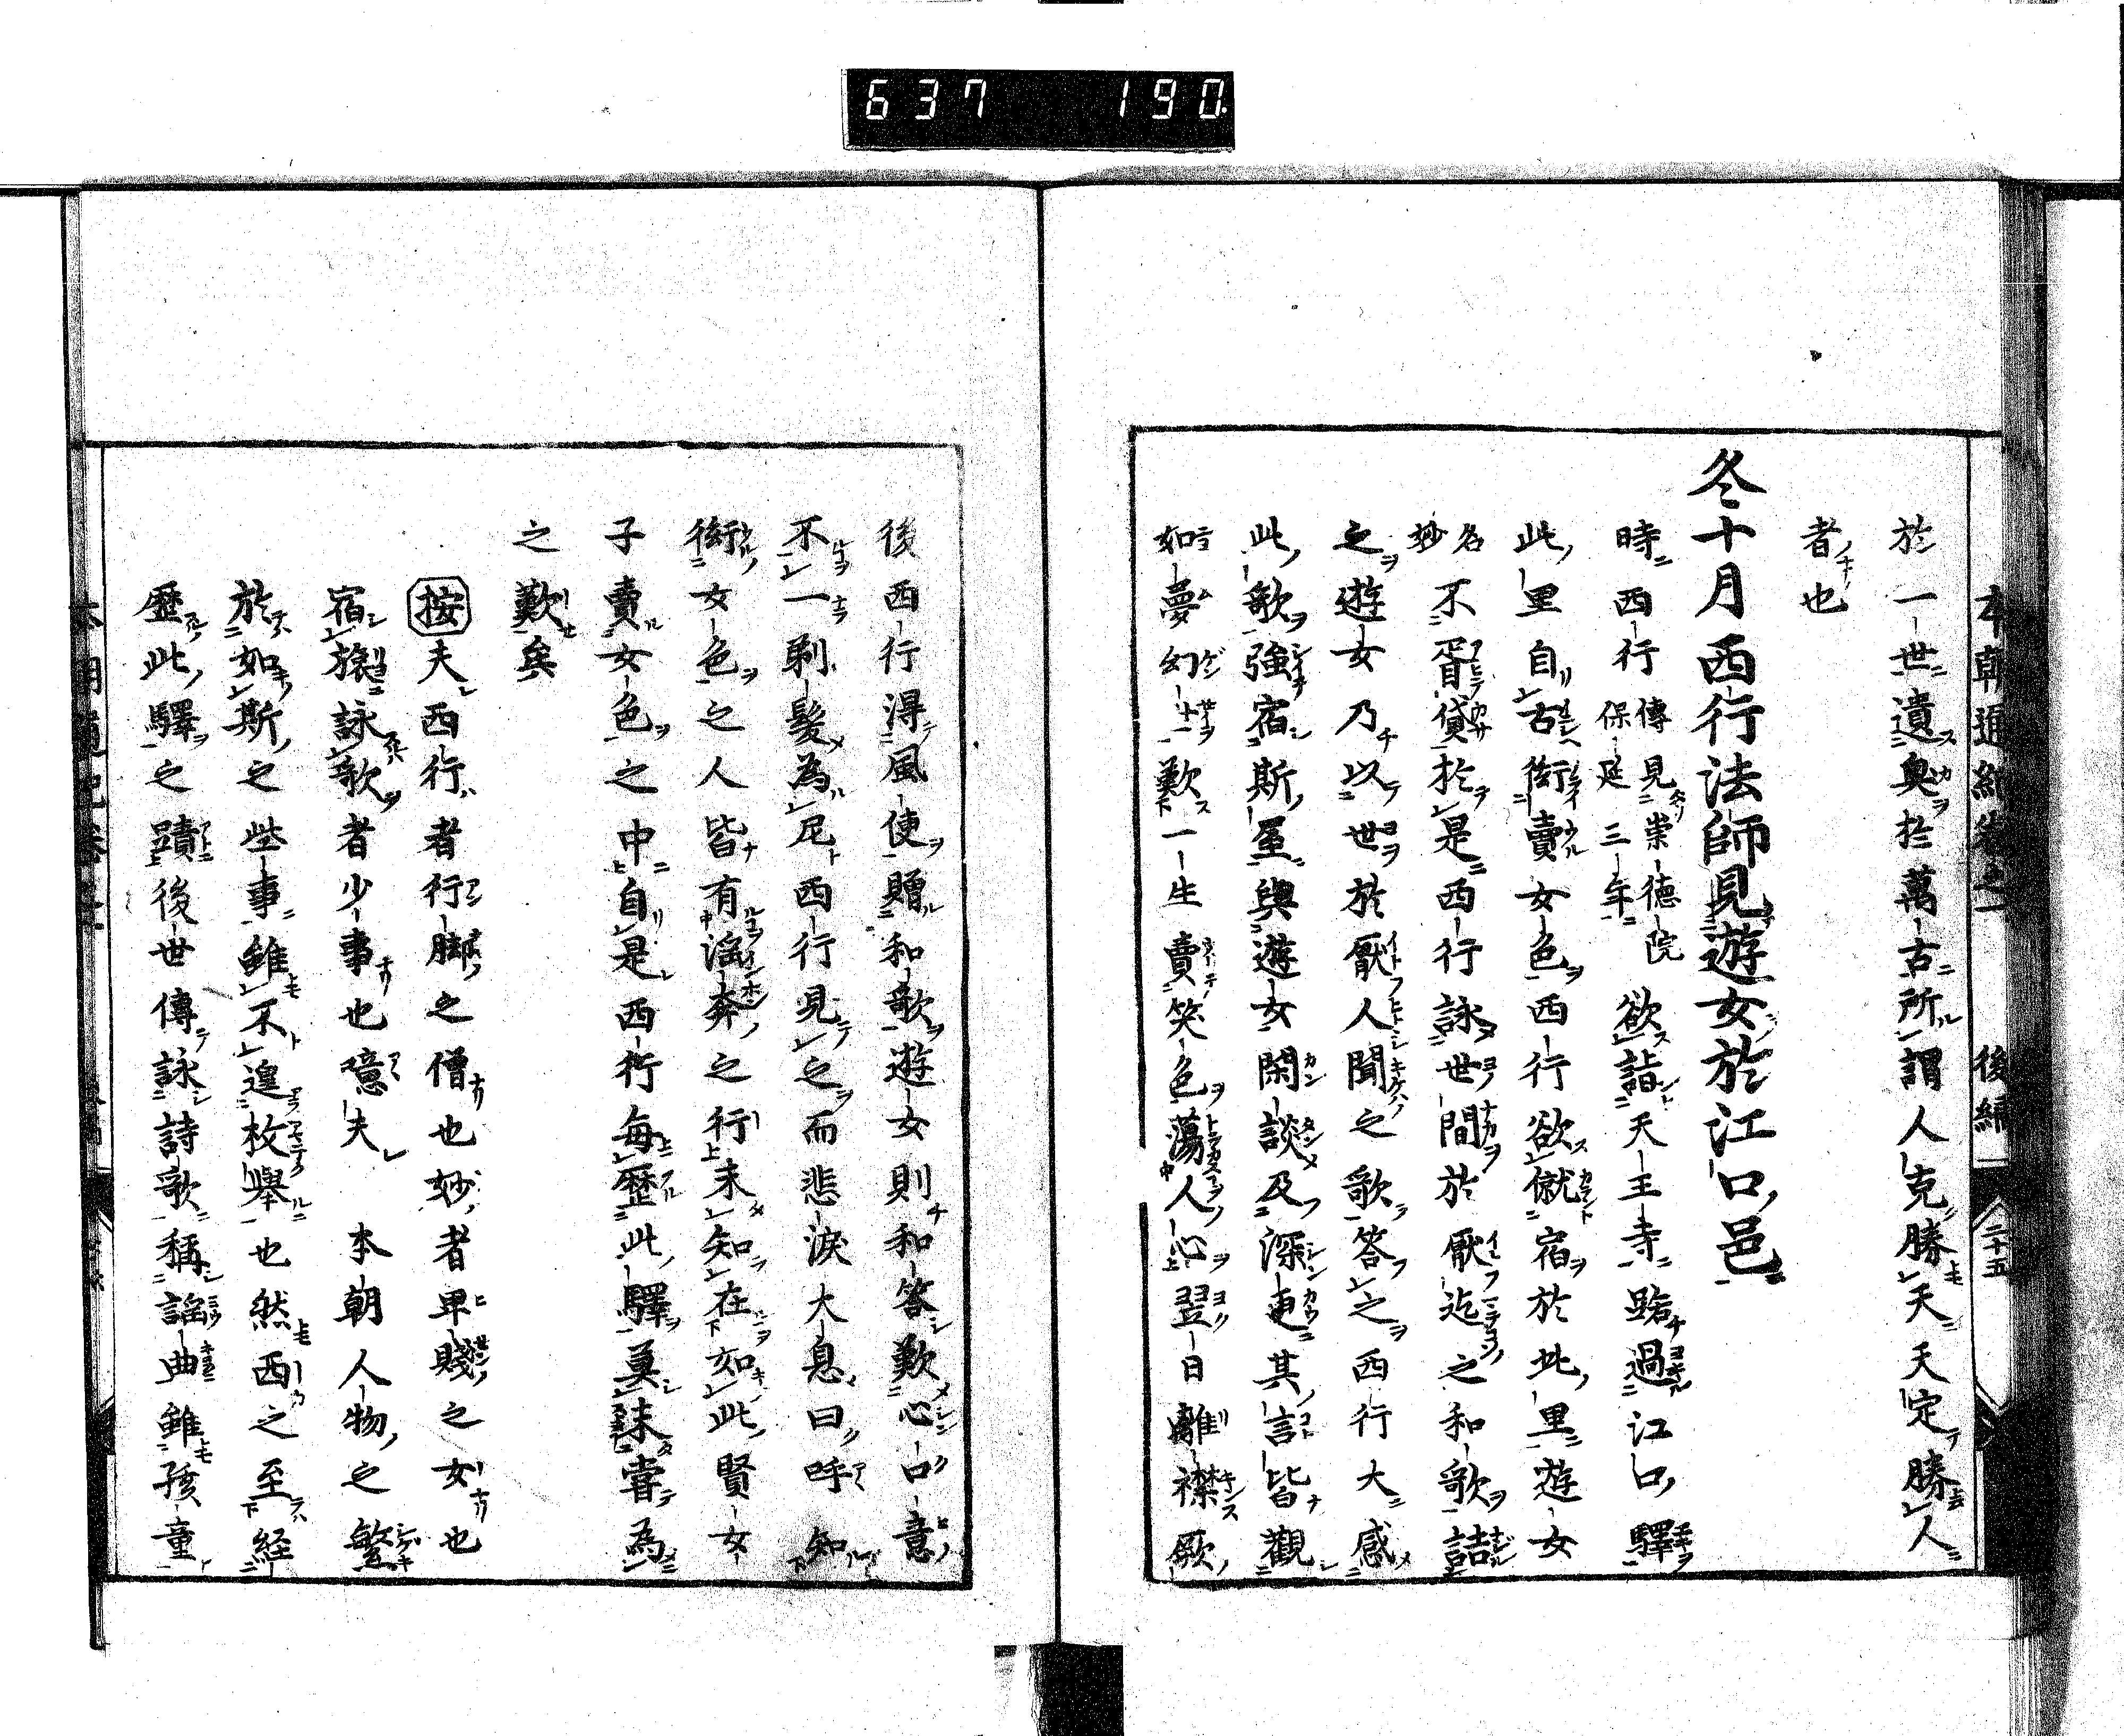 637 190
本朝通紀卷之一 後編 二十五
於一世遺臭於萬古所謂人克勝天天定勝人
者也
冬十月西行法師見遊女於江口邑
時西行傳見崇德院保延三年欲詣天王寺路過江口驛
此里自古衒賣女色西行欲僦宿於此里遊女
名妙不肯貸於是西行詠世間於厭迄之和歌詰
之遊女乃以世於厭人聞之歌答之西行大感
此歌強宿斯屋與遊女閑談及深更其言皆觀
如夢幻十二歎一生賣笑色蕩人心翌日離襟厥
後西行得風使贈和歌遊女則和答歎心口意
不一剃髮為尼西行見之而悲淚大息曰呼知
衒女色之人皆有滛奔之行未知在如此賢女
子賣女色之中自是西行每歷此驛莫未嘗為
之歎矣
按夫西行者行脚之僧也妙者卑賤之女也
宿旅詠歌者少事也噫夫 本朝人物之繁
於如斯之些事雖不遑枚舉也然西之至経
歷此驛之蹟後世傳詠詩歌稱謡曲雖孩童